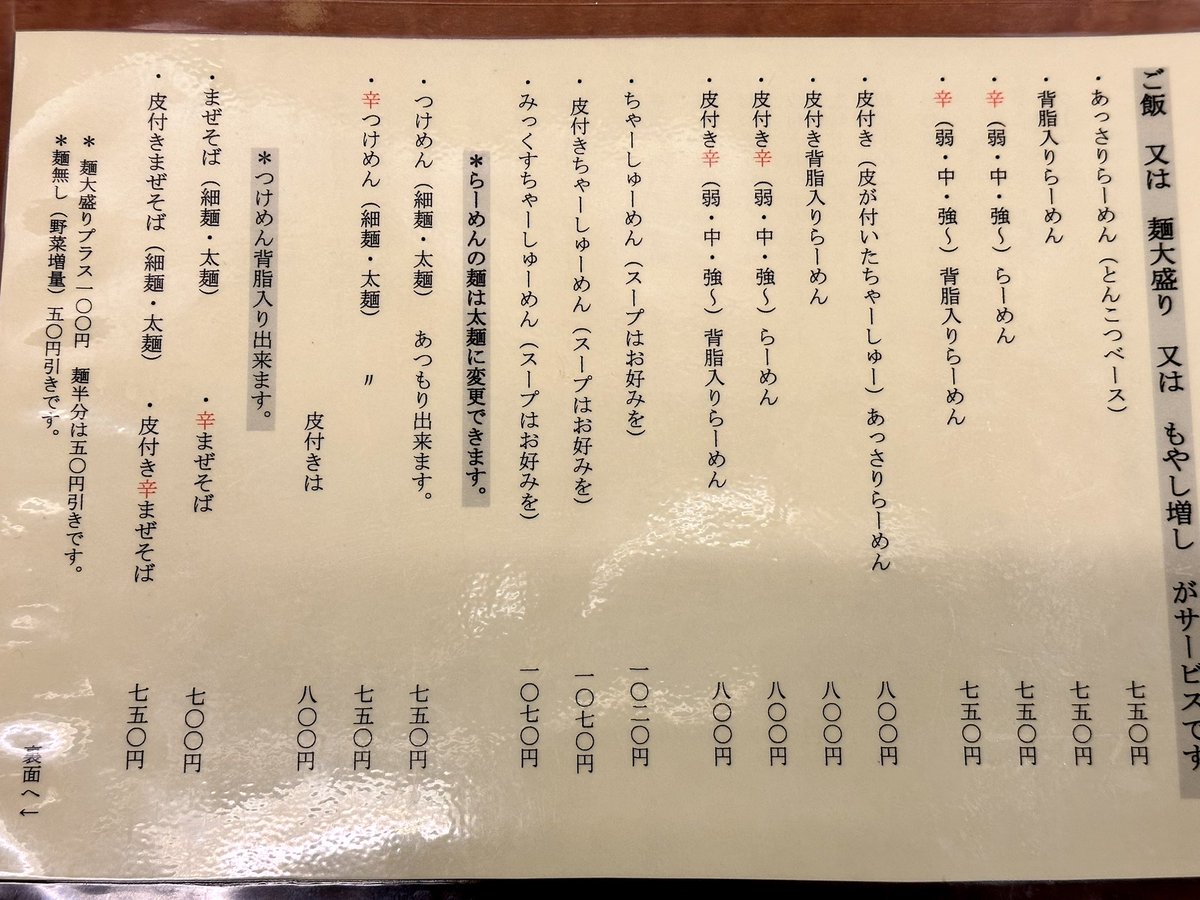 ご飯 又は 麺大盛り 又は もやし増し がサービスです
・あっさりらーめん（とんこつベース） 七五〇円
・背脂入りらーめん 七五〇円
・辛（弱・中・強～）らーめん 七五〇円
・辛（弱・中・強～）背脂入りらーめん 七五〇円
・皮付き（皮が付いたちゃーしゅー）あっさりらーめん 八〇〇円
・皮付き背脂入りらーめん 八〇〇円
・皮付き辛（弱・中・強～）らーめん 八〇〇円
・皮付き辛（弱・中・強～）背脂入りらーめん 八〇〇円
・ちゃーしゅーめん（スープはお好みを） 一〇二〇円
・皮付きちゃーしゅーめん（スープはお好みを） 一〇七〇円
・みっくすちゃーしゅーめん（スープはお好みを） 一〇七〇円
＊らーめんの麺は太麺に変更できます。
・つけめん（細麺・太麺） あつもり出来ます。 七五〇円
・辛つけめん（細麺・太麺） 〃 七五〇円
皮付きは 八〇〇円
＊つけめん背脂入り出来ます。
・まぜそば（細麺・太麺） ・辛まぜそば 七〇〇円
・皮付きまぜそば（細麺・太麺） ・皮付き辛まぜそば 七五〇円
＊ 麺大盛りプラス一〇〇円 麺半分は五〇円引きです。
＊麺無し（野菜増量）五〇円引きです。
裏面へ←